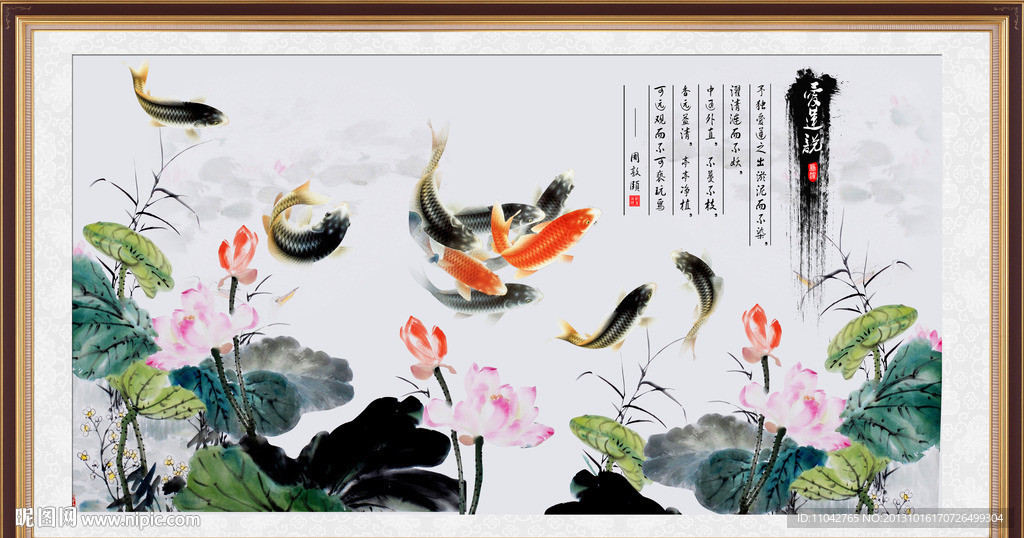 愛蓮説
予独爱莲之出淤泥而不染，
濯清涟而不妖，
中通外直，不蔓不枝，
香远益清，亭亭净植，
可远观而不可亵玩焉
——周敦颐
昵图网 www.nipic.com
ID:11042765 NO:20131016170726499304